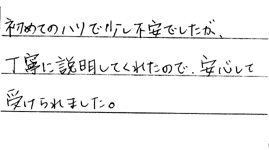 初めてのハリで少し不安でしたが、
丁寧に説明してくれたので、安心して
受けられました。